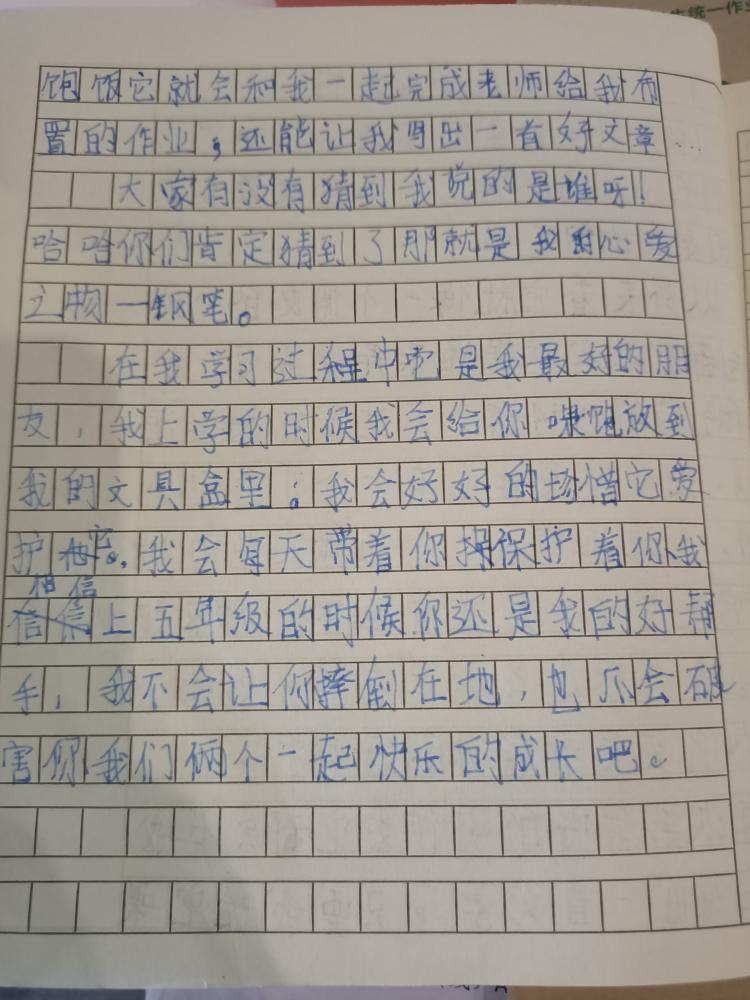 统一作业
饱饭它就会和我一起完成老师给我布
置的作业,还能让我写出一首好文章
大家有没有猜到我说的是谁呀!
哈哈你们肯定猜到了那就是我的心爱
之物一钢笔。
在我学习过程中它是我最好的朋
友,我上学的时候我会给你喂饱放到
我的文具盒里。我会好好的珍惜它爱
护它。我会每天带着你保护着你、我
相信
上五年级的时候你还是我的好帮
手,我不会让你摔倒在地,也不会破
害你我们俩个一起快乐的成长吧。